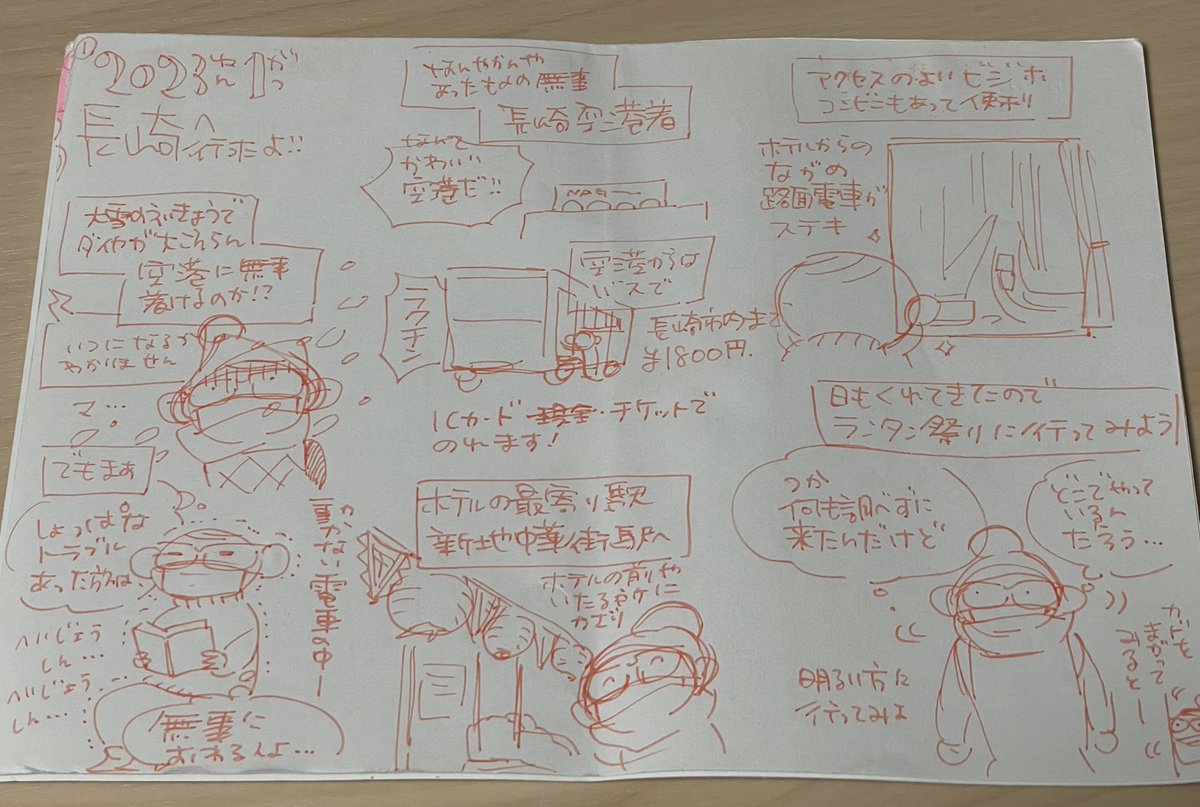 ①
2023ねん1がつ
長崎へ
行ったよ!!
大雪のえいきょうで
ダイヤが大こんらん
空港に無事
着けるのか!?
いつになるか
わかりません
マ…
でもまぁ
しょっぱな
トラブル
あった方が
へいじょう
しん…
へいじょう
しん…
動かない電車の中ー
無事に
おわるよ…
なんやかんや
あったものの無事
長崎空港着
なんて
かわいい
空港だ!!
空港からは
バスで
ラクチン
長崎市内まで
¥1800円.
ICカード・現金・チケットで
のれます!
ホテルの最寄り駅
新地中華街駅へ
ホテルの前や
いたる所に
かざり
アクセスのよいビジホ
コンビニもあって便利
ホテルからの
ながめ
路面電車が
ステキ
日もくれてきたので
ランタン祭りに行ってみよう
つか
何も調べずに
来たんだけど
どこでやって
いるん
だろう…
明るい方に
行ってみよ
カドを
まがって
みるとー